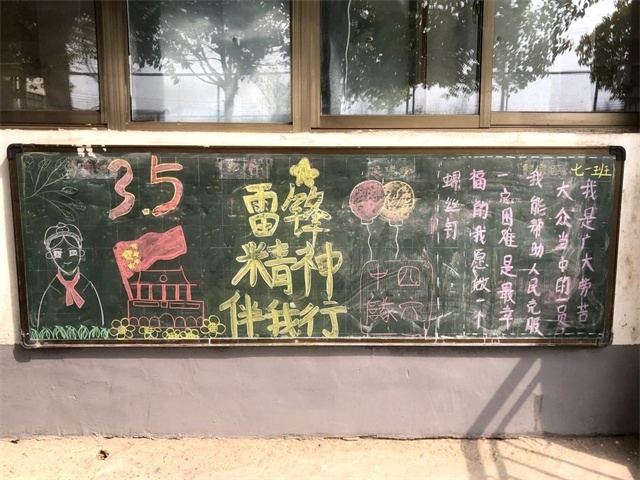 3.5
雷锋
精神
伴我行
七一班
我是广大劳苦
大众当中的一员
我能帮助人民克服
一点困难是最幸
福的我愿做一个
螺丝钉